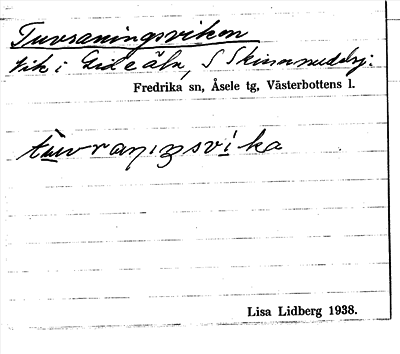 Tuvraningsviken
Vik i Gideälv, S Skinnmuddsj.
Fredrika sn, Åsele tg, Västerbottens l.
tuvraniŋsvika
Lisa Lidberg 1938.